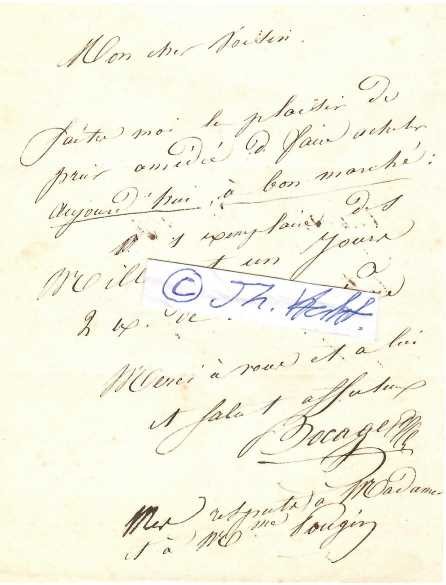 Mon cher Voisin.
Faites moi le plaisir de
prier amédée d faire acheter
aujourd'hui, à bon marché:
1 exemplaire des
Mill et un Jours
à
2 ex. de
Merci à vous et à lui
et salut affectueux
Bocage
Mes respects à Madame
et à Mme Pougin
© Th. Vetter